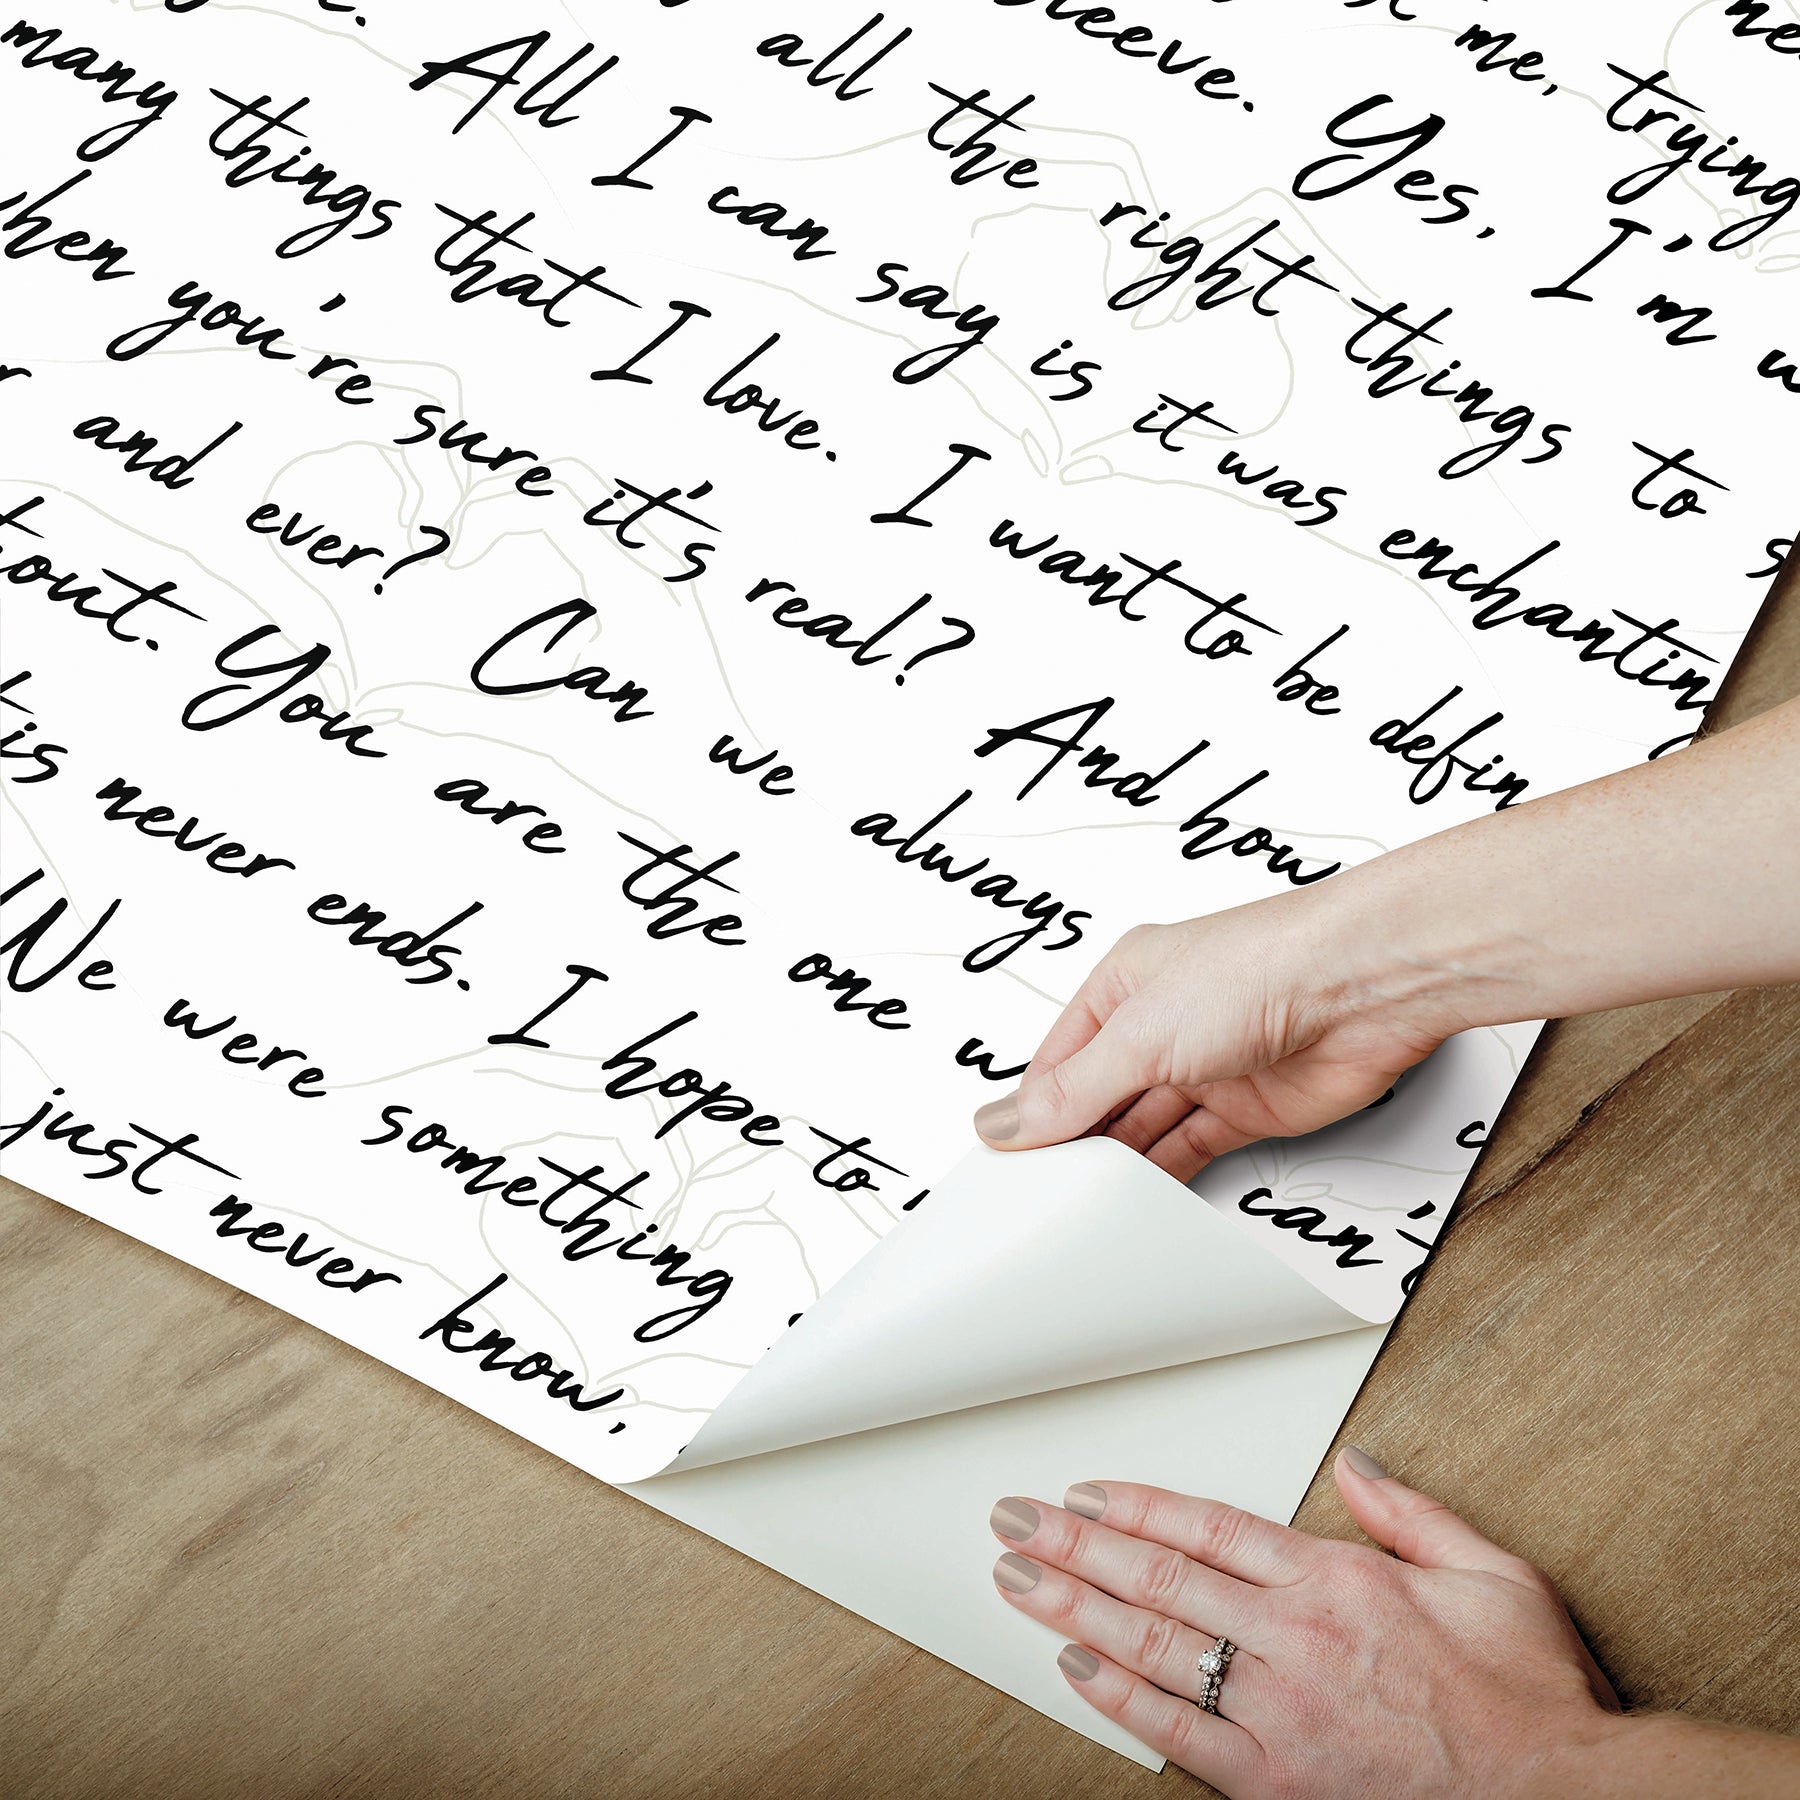 me, trying
Yes, I'm
all the right things to
All I can say is it was enchanting
many things that I love. I want to be defin
hen you're sure it's real? And how
and ever? Can we always
out. You are the one can't
is never ends. I hope to
We were something
just never know,